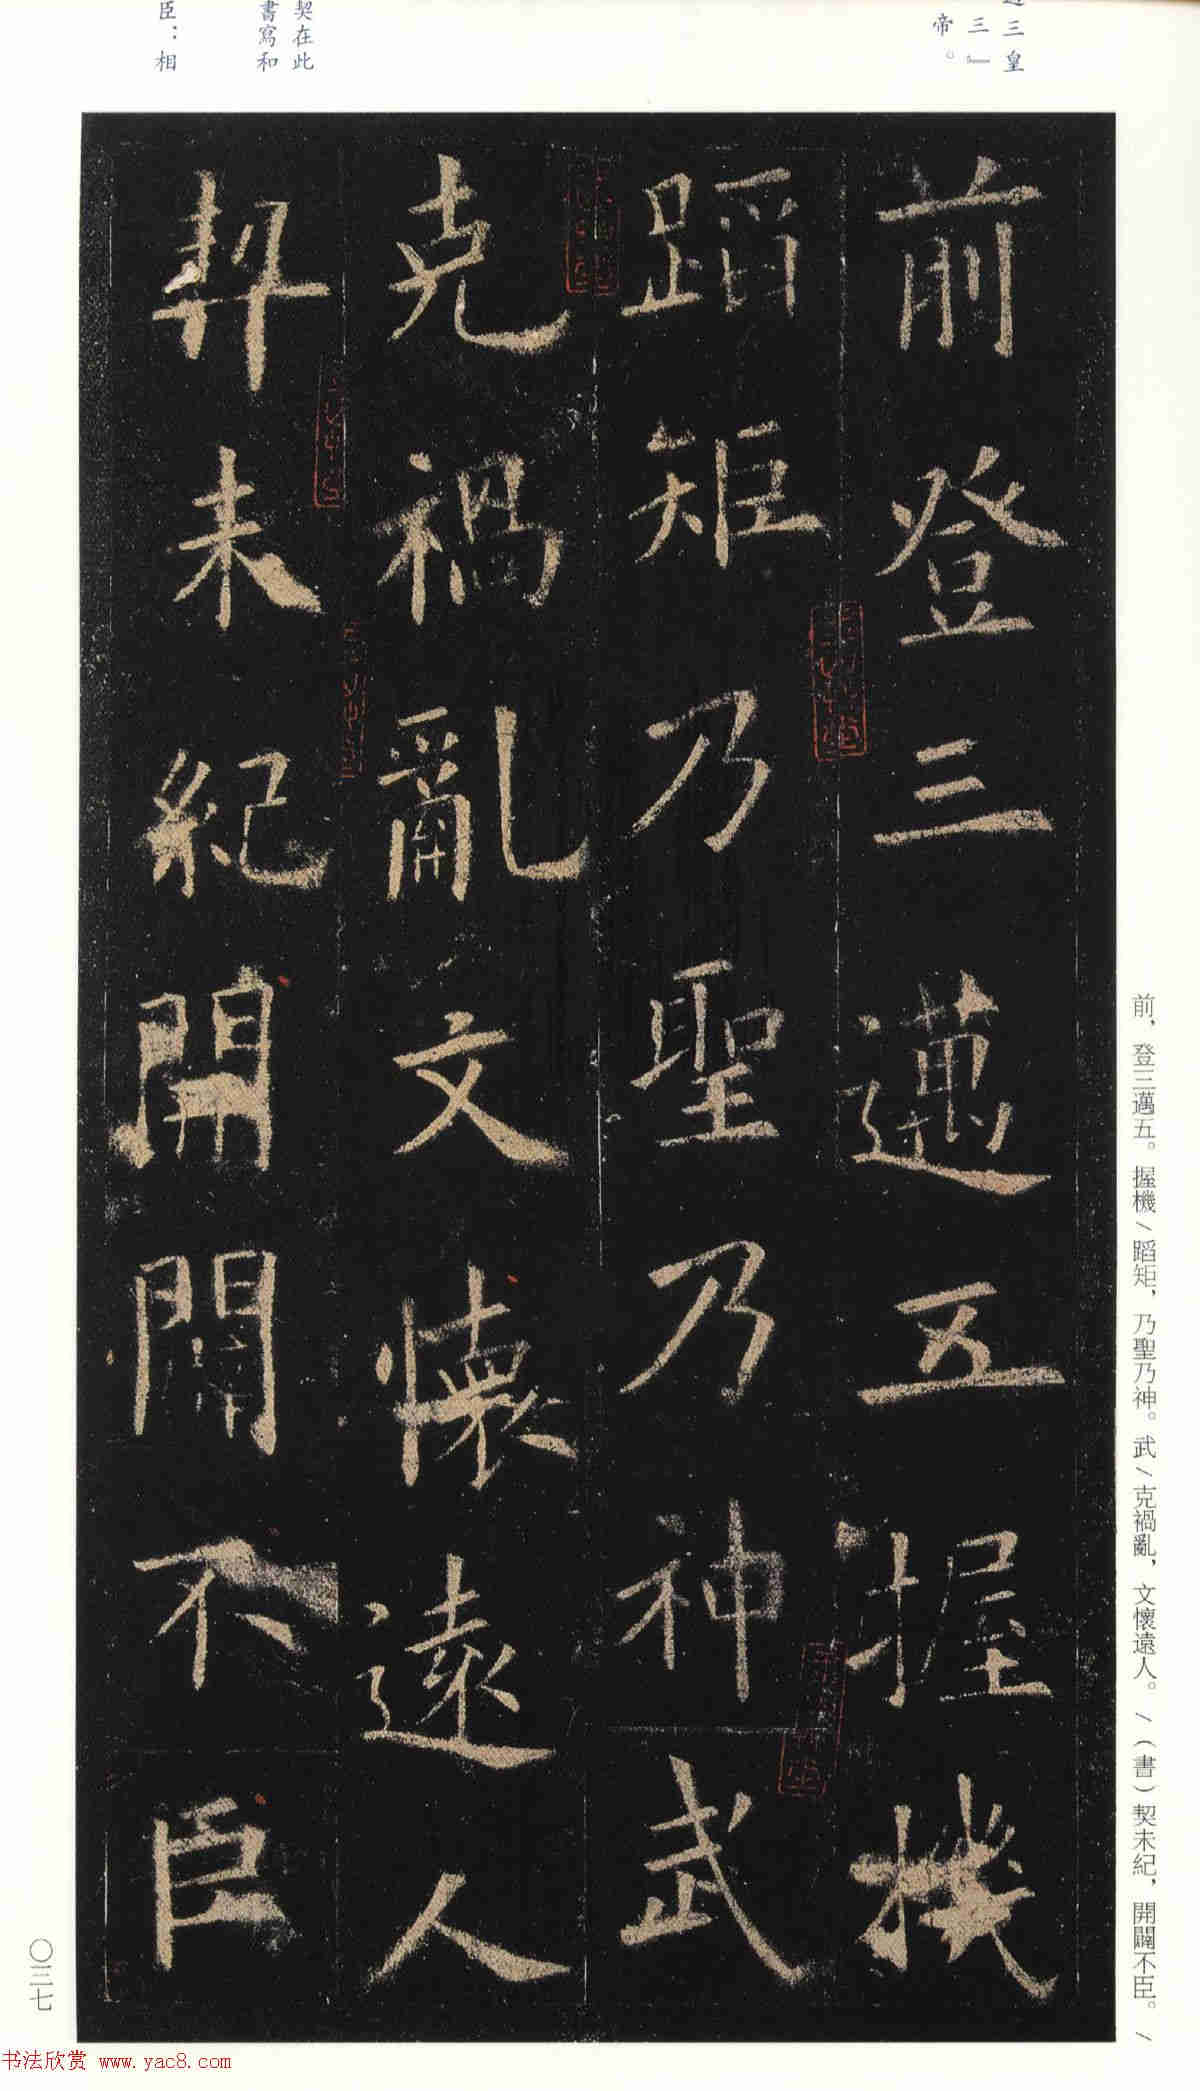 迈三皇
三』
帝。
契在此
書寫和
臣：相
前登三邁五握機
蹈矩乃聖乃神武
克禍亂文懷遠人
契未紀開闢不臣
前，登三邁五。握機／蹈矩，乃聖乃神。武／克禍亂，文懷遠人。／（書）契未紀，開闢不臣。／
〇三七
书法欣赏 www.yac8.com